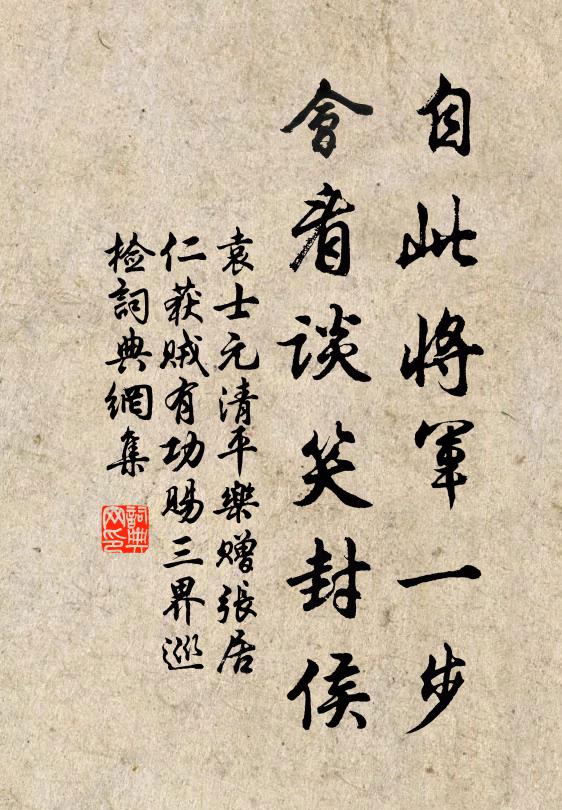 自此將軍一步
會看談笑封侯
袁士元清平樂贈張居
仁获賊有功賜三界巡
檢詞典網集
詞典网印